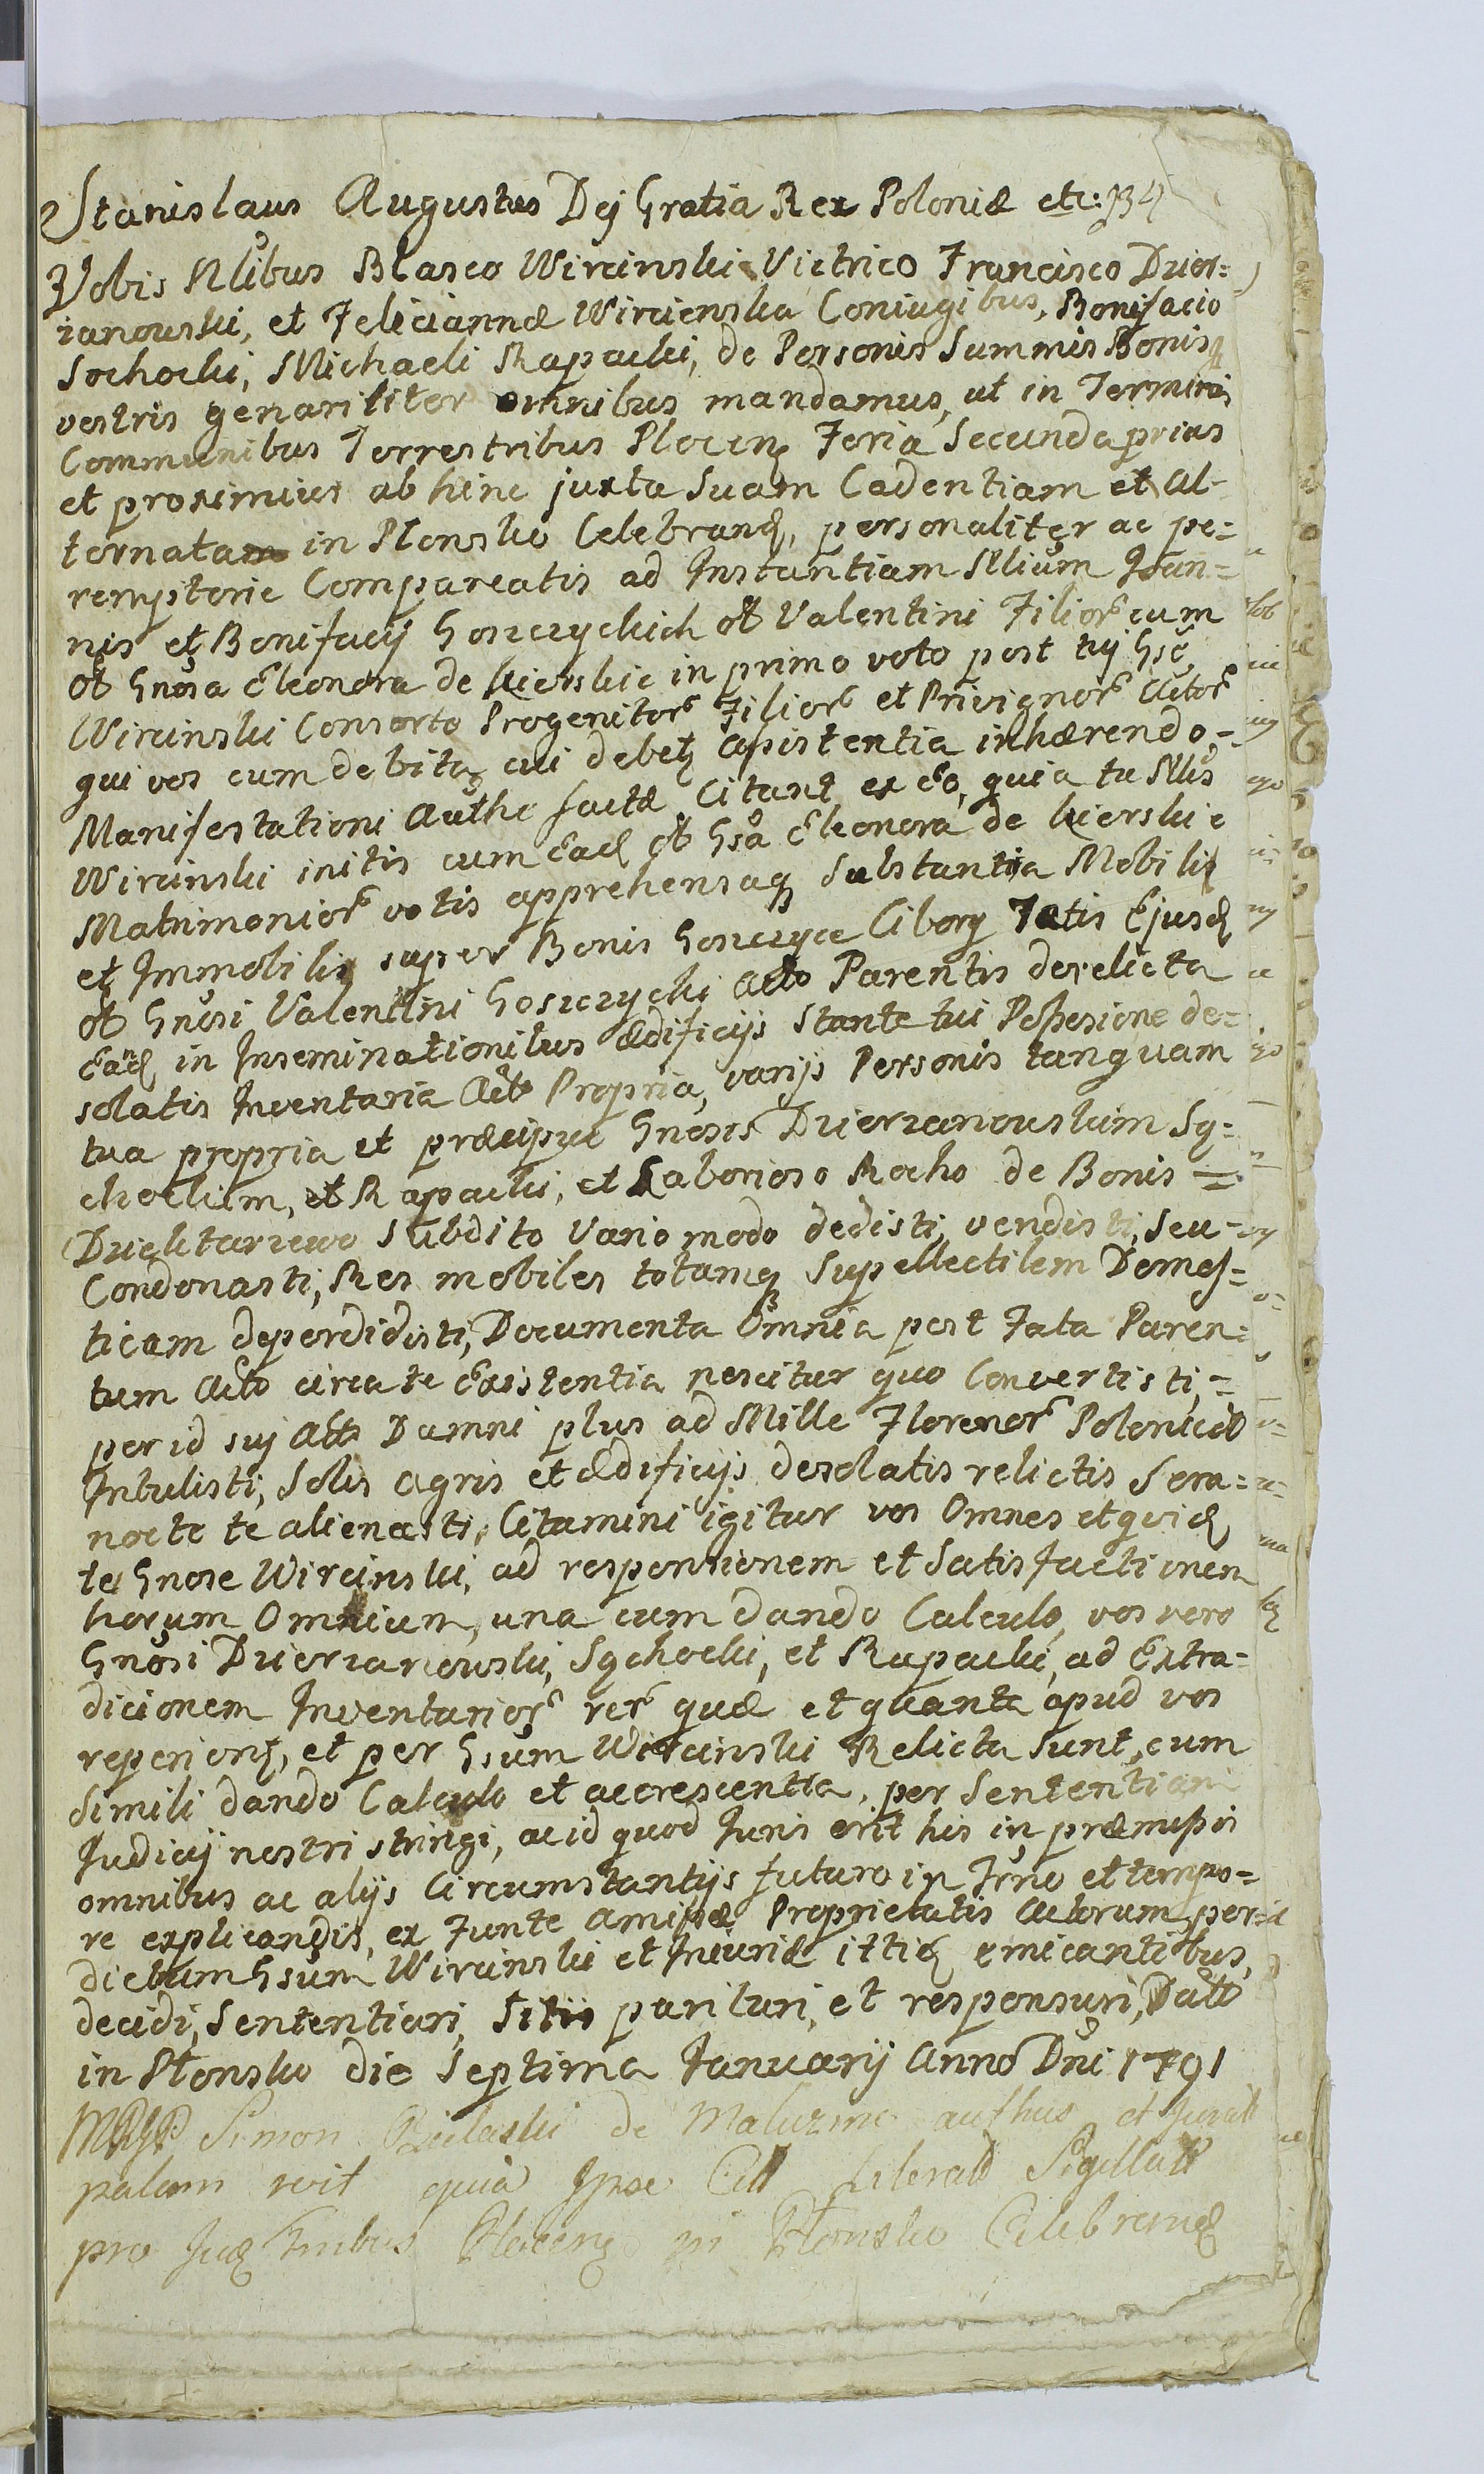 Stanislaus Augustus Dej Gratia Rex Poloniæ etc: 134
Vobis Nlibus Blasco Wircinski Victrico Francisco Dzier=
zanowski, et Feliciannæ Wircienska Coniugibus, Bonifacio
Sochocki, Michaeli Rapacki, de Personis Summis Bonisq
vestris genariliter omnibus mandamus, ut in Terminis
Communibus Terrestribus Plocen Feria Secunda prius
et proximius ab hinc juxta Suam Cadentiam et Al-
ternatam in Płonsko Celebrand, personaliter ac pe=
remptorie Compareatis ad Instantiam Nlium Joan=
nis et Bonifacij Goszczyckich olt Valentini Filior cum
olt Gnosa Eleonora de Kierskie in primo voto post tuj Gse
Wircinski Consorto Progenitor Filior et Privignor Actor
qui vos cum debita cui debet assistentia inhærendo,-
Manifestationi Authe factæ Citant ex Eo, quia tu Nlis
Wircinski initis cum Ead olt Gsa Eleonora de Kierskie
Matrimonior votis apprehensaq Substantia Mobili
et Immobili super Bonis Goszczyce Cibory Fatis Ejusd
olt Gnosi Valentini Goszczycki Acto Parentis derelicta
Ead in Inseminationibus Ædificijs Stante tui Possesione de=
solatis Inventaria Acto Propria, varijs Personis tanquam
tua propria et præcipue Gnosis Dzierzanowskim So=
chockim, et Rapacki, et Laborioso Rocho de Bonis =
Dziektarzewo Subdito Vario modo dedisti, vendisti, Seu-
Condonasti, Res mobiles totamq Supellectilem Domes=
ticam deperdidisti, Documenta Omnia post Fata Paren=
tum Acto circa te Existentia nescitur quo Convertisti,=
per id suj Acto Damni plus ad Mille Florenor Polonical
Intulisti, Solis Agris et Ædificijs desolatis relictis Sera=
nocte te alienasti, Citamini igitur vos Omnes et quid
te Gnose Wircinski, ad responsionem et Satisfactionem
horum Omnium, una cum dando Calculo, vos vero
Gnosi Dzierzanowski, Sochocki, et Rapacki, ad Extra=
dicionem Inventarior rer quæ et quanta apud vos
reperient, et per Gsum Wircinski Relicta Sunt, cum
Simili dando Calculo et accrescentia, per Sententiam
Judicij nostri stringi, ac id quod Juris erit his in præmissis
omnibus ac alijs Circumstantijs futuro in Trno et tempo=
re explicandis, ex Funte Amissæ Proprietatis Actorum per
dictum Gsum Wircinski et Iniuriæ ittid emicantibus,
decidi, Sententiari, Sitis parituri, et responsuri, Datt
in Płonsko die Septima Januarij Anno Dni 1791
Simon Bielaski de Maluzine authus et Juratt
palam rcit quia Ipse Citt Literatt Sigillatt
pro Jud Trnibus Plocen in Płonsko Celebrand